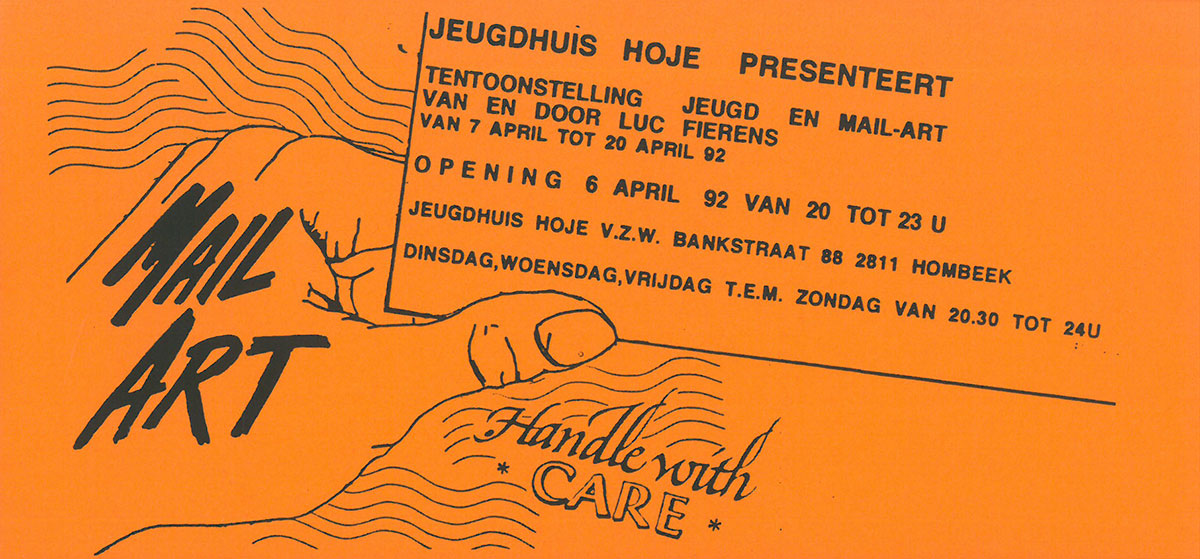 JEUGDHUIS HOJE PRESENTEERT
TENTOONSTELLING JEUGD EN MAIL-ART
VAN EN DOOR LUC FIERENS
VAN 7 APRIL TOT 20 APRIL 92
OPENING 6 APRIL 92 VAN 20 TOT 23 U
JEUGDHUIS HOJE V.Z.W. BANKSTRAAT 88 2811 HOMBEEK
DINSDAG,WOENSDAG,VRIJDAG T.E.M. ZONDAG VAN 20.30 TOT 24U
MAIL
ART
Handle with
* CARE *